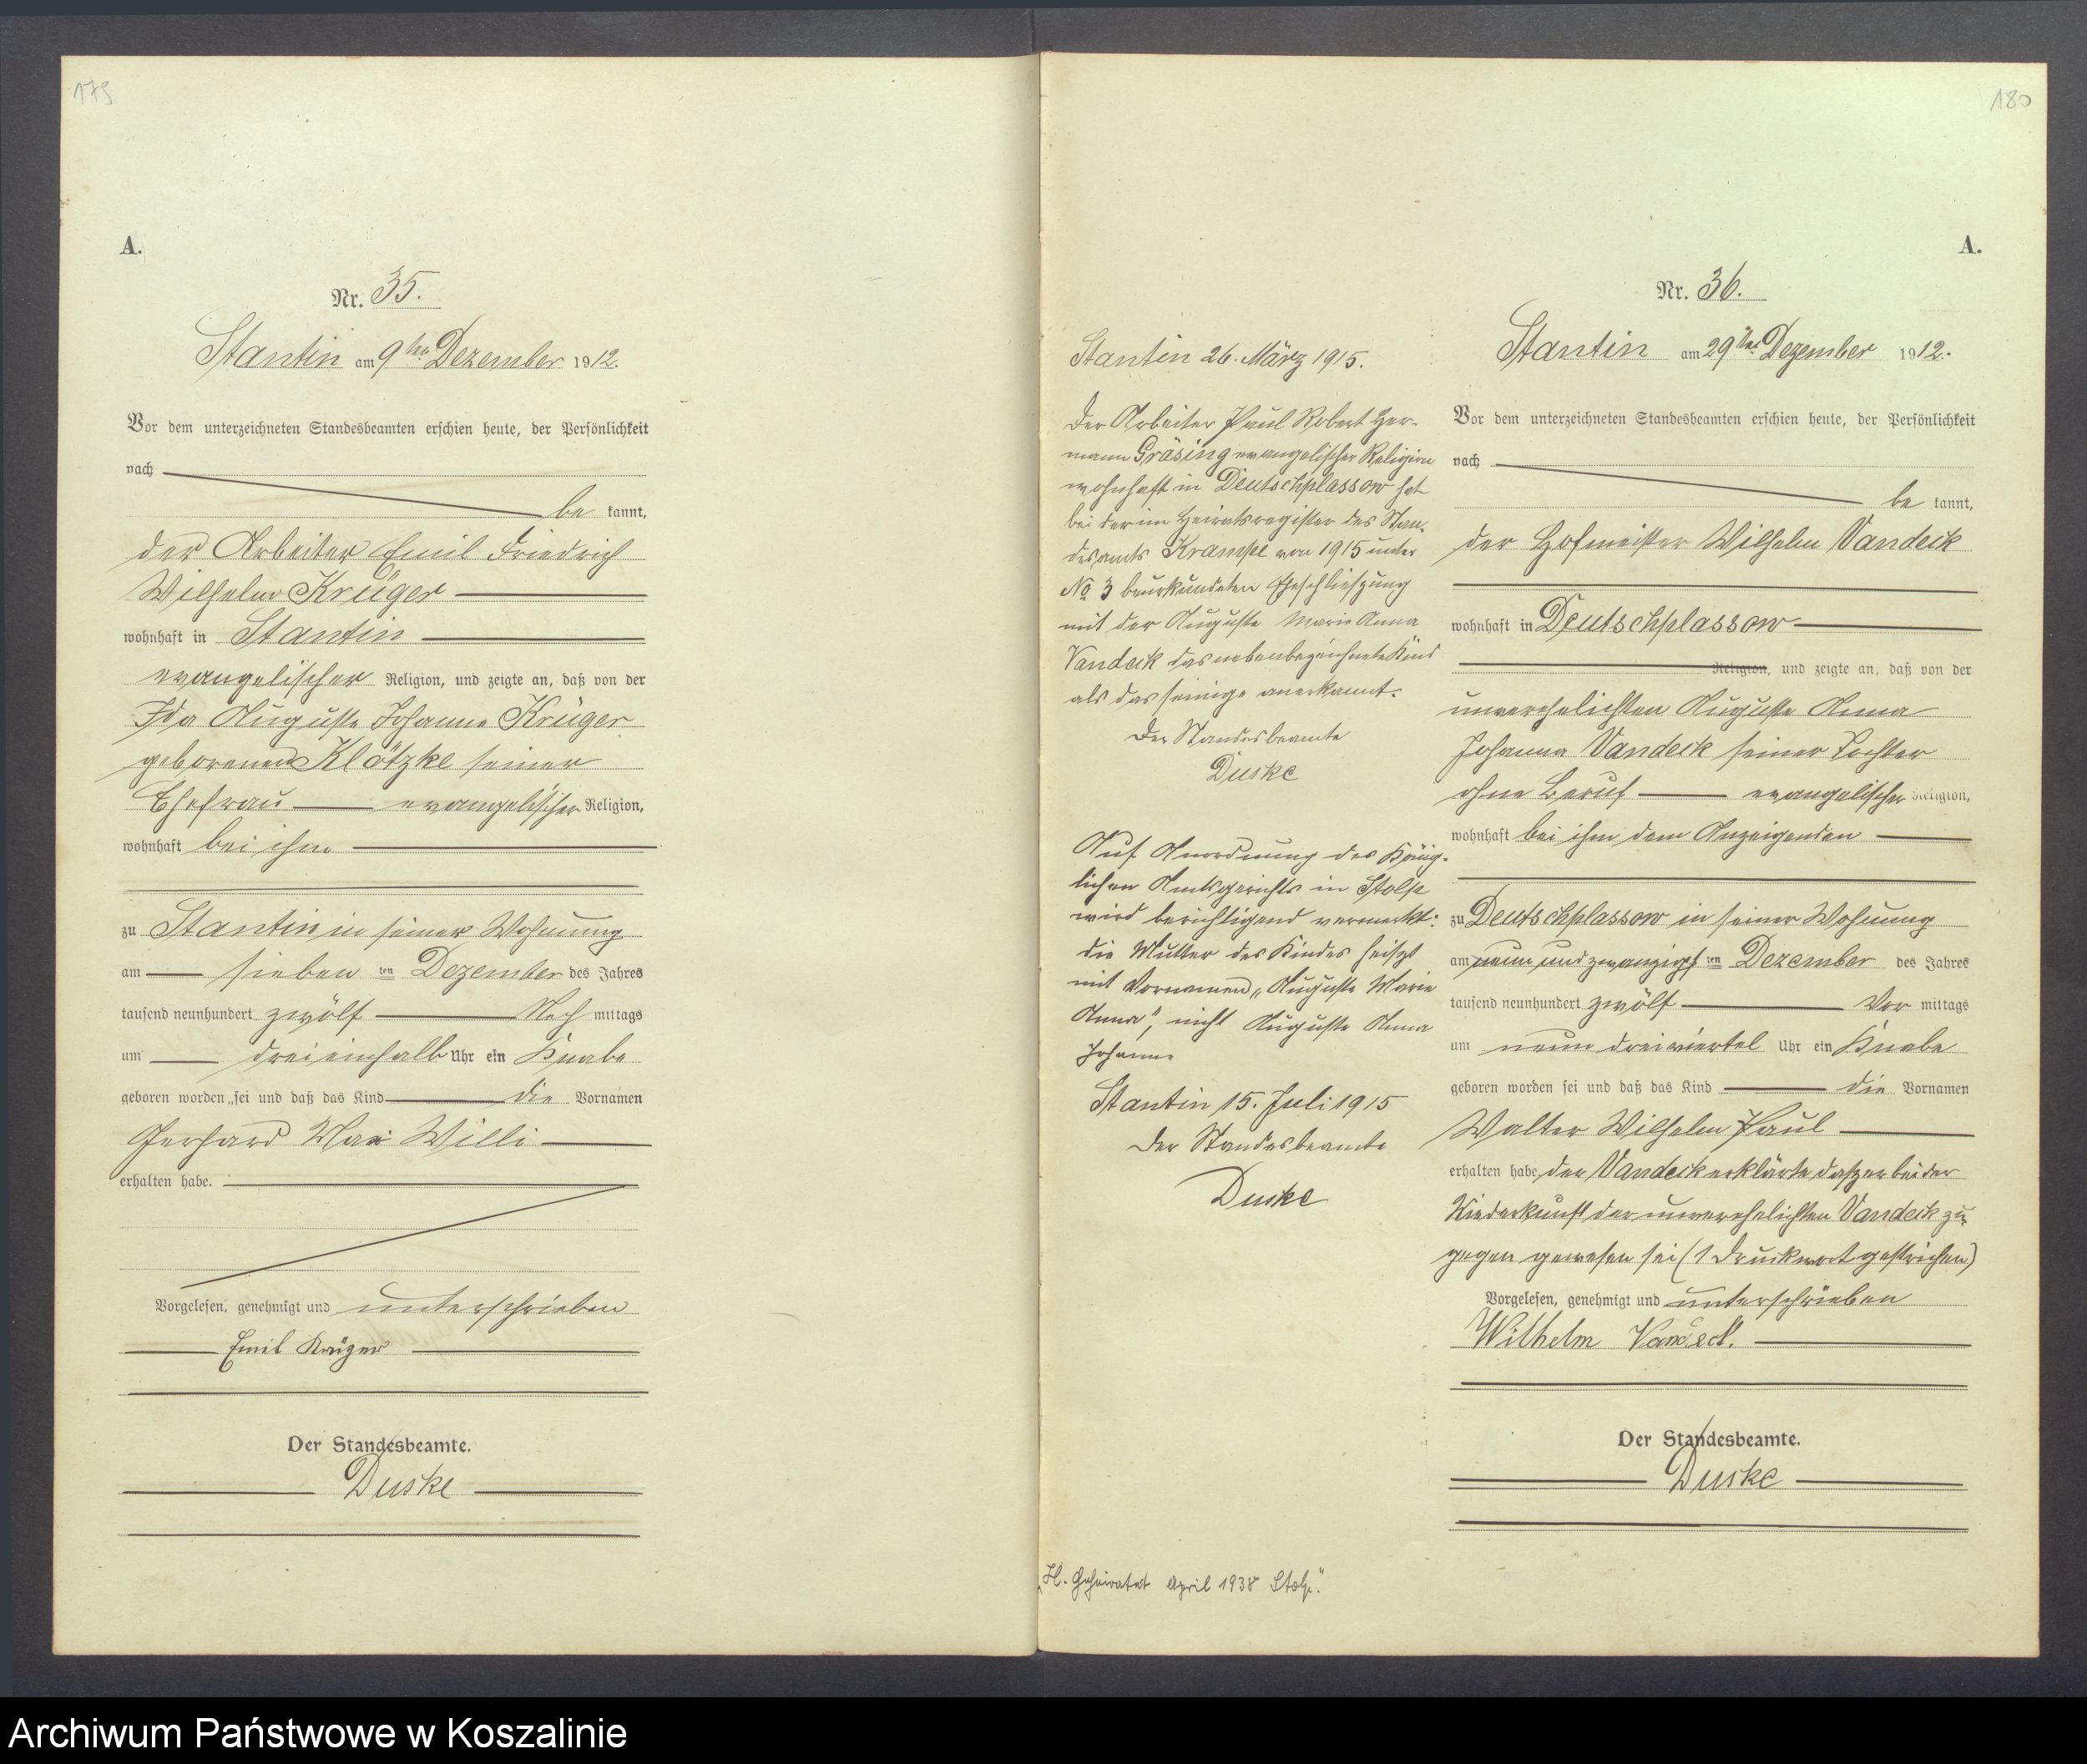 179
A.
Nr. 35.
Stantin am 9ten Dezember 1912.
Vor dem unterzeichneten Standesbeamten erschien heute, der Persönlichkeit
nach
be kannt,
der Arbeiter Emil Friedrich
Wilhelm Krüger
wohnhaft in Stantin
evangelischer Religion, und zeigte an, daß von der
Ida Auguste Johanne Krüger
geborenen Klötzke seiner
Ehefrau evangelischer Religion,
wohnhaft bei ihm
zu Stantin in seiner Wohnung
am sieben ten Dezember des Jahres
tausend neunhundert zwölf Nach mittags
um dreieinhalb Uhr ein Knabe
geboren worden sei und daß das Kind die Vornamen
Gerhard Max Willi
erhalten habe.
Vorgelesen, genehmigt und unterschrieben
Emil Krüger
Der Standesbeamte.
Duske
180
A.
Stantin 26. März 1915.
Der Arbeiter Paul Robert Her-
mann Gräsing evangelischer Religion
wohnhaft in Deutschplassow hat
bei der im Heiratsregister des Stan-
desamts Krampe von 1915 unter
No 3 beurkundeten Eheschließung
mit der Auguste Marie Anna
Vandeck das nebenbezeichnete Kind
als das seinige anerkannt.
Der Standesbeamte
Duske
Auf Anordnung des König-
lichen Amtsgerichts in Stolp
wird berichtigend vermerkt:
die Mutter des Kindes heißt
mit Vornamen „Auguste Marie
Anna", nicht Auguste Anna
Johanne
Stantin 15. Juli 1915
Der Standesbeamte
Duske
"H. Geheiratet April 1938 Stolp."
Nr. 36.
Stantin am 29ten Dezember 1912.
Vor dem unterzeichneten Standesbeamten erschien heute, der Persönlichkeit
nach
be kannt,
der Hofmeister Wilhelm Vandeck
wohnhaft in Deutschplassow
Religion, und zeigte an, daß von der
unverehelichten Auguste Anna
Johanna Vandeck seiner Tochter
ohne Beruf evangelischer Religion,
wohnhaft bei ihm dem Anzeigenden
zu Deutschplassow in seiner Wohnung
am neunundzwanzigs ten Dezember des Jahres
tausend neunhundert zwölf Vor mittags
um neun dreiviertel Uhr ein Knabe
geboren worden sei und daß das Kind die Vornamen
Walter Wilhelm Paul
erhalten habe, der Vandeck erklärte daß er bei der
Niederkunft der unverehelichten Vandeck zu-
gegen gewesen sei (1 Druckwort gestrichen)
Vorgelesen, genehmigt und unterschrieben
Wilhelm Vandeck.
Der Standesbeamte.
Duske
Archiwum Państwowe w Koszalinie